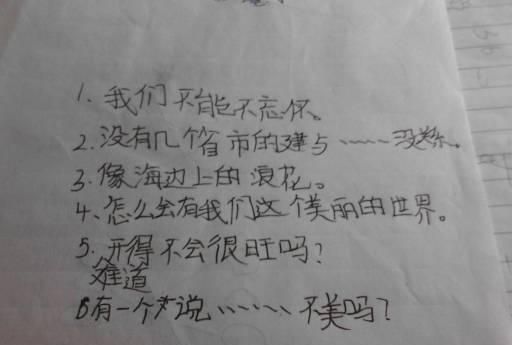 1. 我们不能不忘怀。
2. 没有几个省市的建与……没关系。
3. 像海边上的浪花。
4、怎么会有我们这个美丽的世界。
5. 开得不会很旺吗？
难道
6有一个说……不美吗？